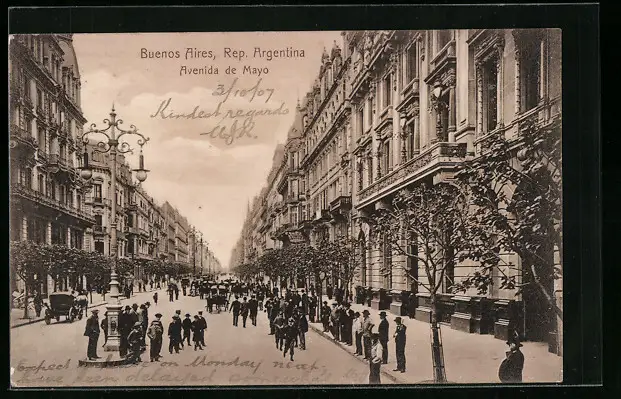 Buenos Aires, Rep. Argentina
Avenida de Mayo
3/10/07
Kindest regards
Expect on Monday next
have been delayed